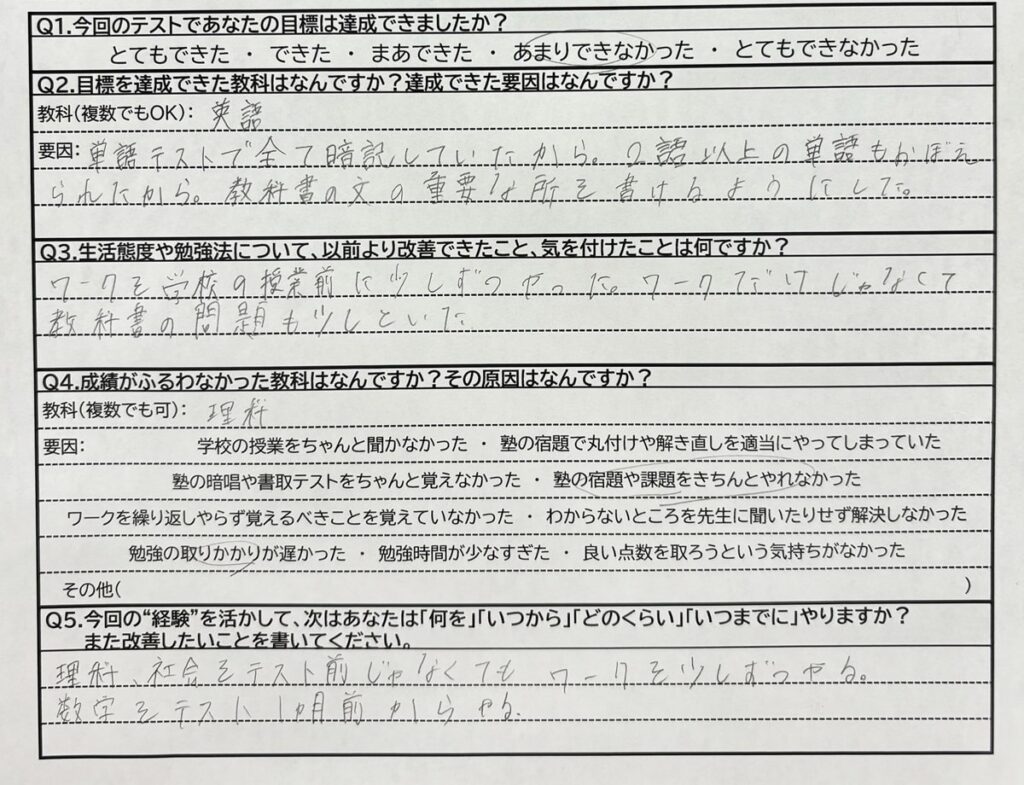 Q1.今回のテストであなたの目標は達成できましたか？
とてもできた ・ できた ・ まあできた ・ あまりできなかった ・ とてもできなかった
Q2.目標を達成できた教科はなんですか？達成できた要因はなんですか？
教科(複数でもOK)： 英語
要因： 単語テストで全て暗記していたから。2語以上の単語もおぼえ
られたから。教科書の文の重要な所を書けるようにした。
Q3.生活態度や勉強法について、以前より改善できたこと、気を付けたことは何ですか？
ワークを学校の授業前に少しずつやった。ワークだけじゃなくて
教科書の問題も少しといた
Q4.成績がふるわなかった教科はなんですか？その原因はなんですか？
教科(複数でも可)： 理科
要因： 学校の授業をちゃんと聞かなかった ・ 塾の宿題で丸付けや解き直しを適当にやってしまっていた
塾の暗唱や書取テストをちゃんと覚えなかった ・ 塾の宿題や課題をきちんとやれなかった
ワークを繰り返しやらず覚えるべきことを覚えていなかった ・ わからないところを先生に聞いたりせず解決しなかった
勉強の取りかかりが遅かった ・ 勉強時間が少なすぎた ・ 良い点数を取ろうという気持ちがなかった
その他( )
Q5.今回の“経験”を活かして、次はあなたは「何を」「いつから」「どのくらい」「いつまでに」やりますか？
また改善したいことを書いてください。
理科、社会をテスト前じゃなくても ワークを少しずつやる。
数学をテスト1ヵ月前からやる。